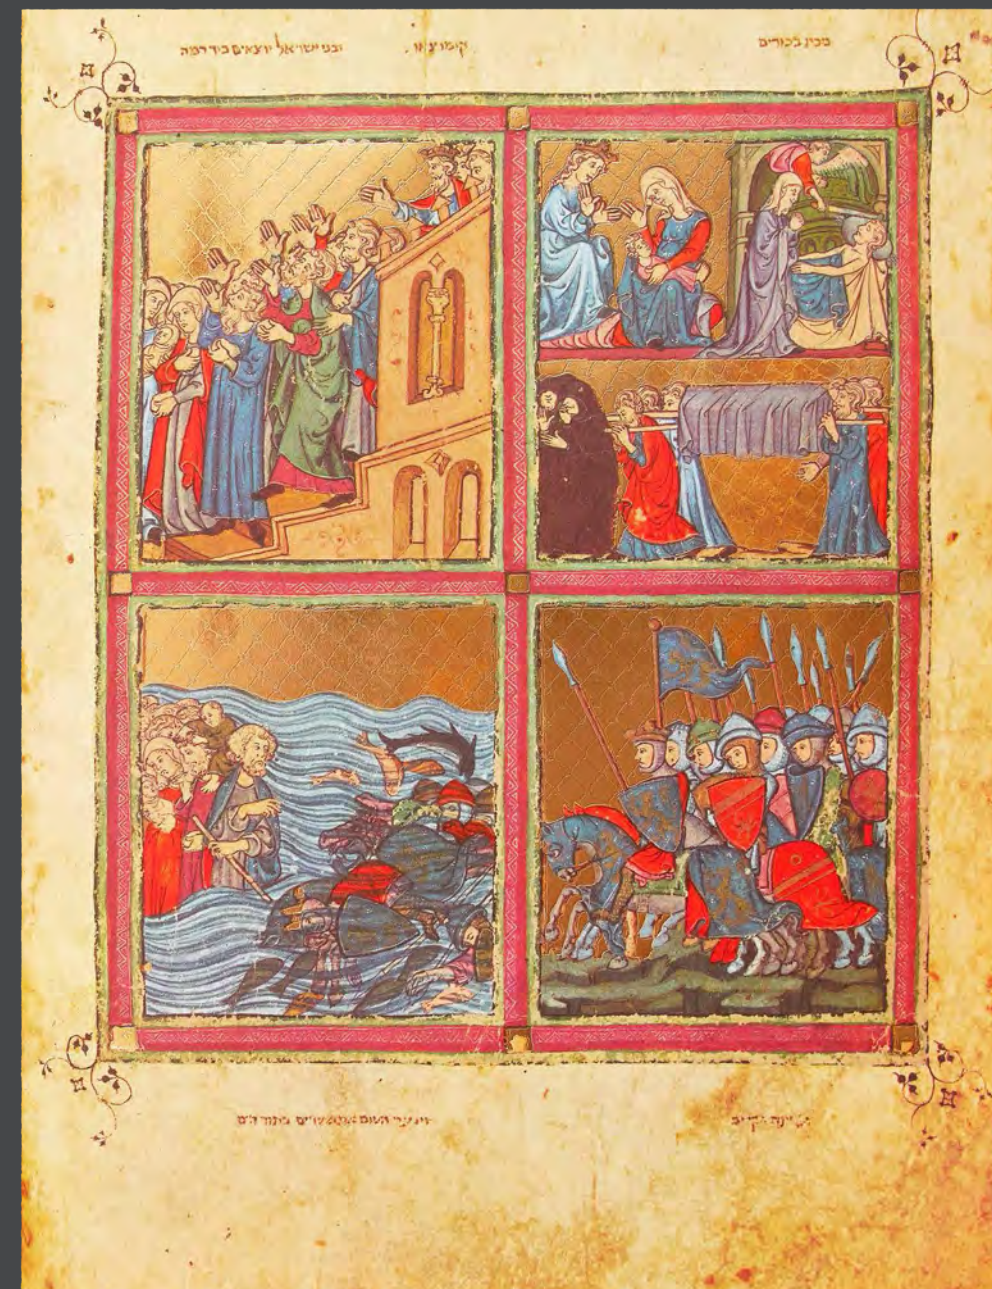 מכת בכורים
קומו צאו
ובני ישראל יוצאים ביד רמה
ופרעה הקריב
וינער השם את מצרים בתוך הים